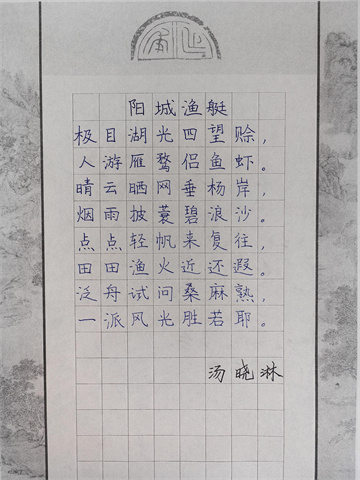 阳城渔艇
极目湖光四望赊，
人游雁鹜侣鱼虾。
晴云晒网垂杨岸，
烟雨披蓑碧浪沙。
点点轻帆来复往，
田田渔火近还遐。
泛舟试问桑麻熟，
一派风光胜若耶。
汤晓淋